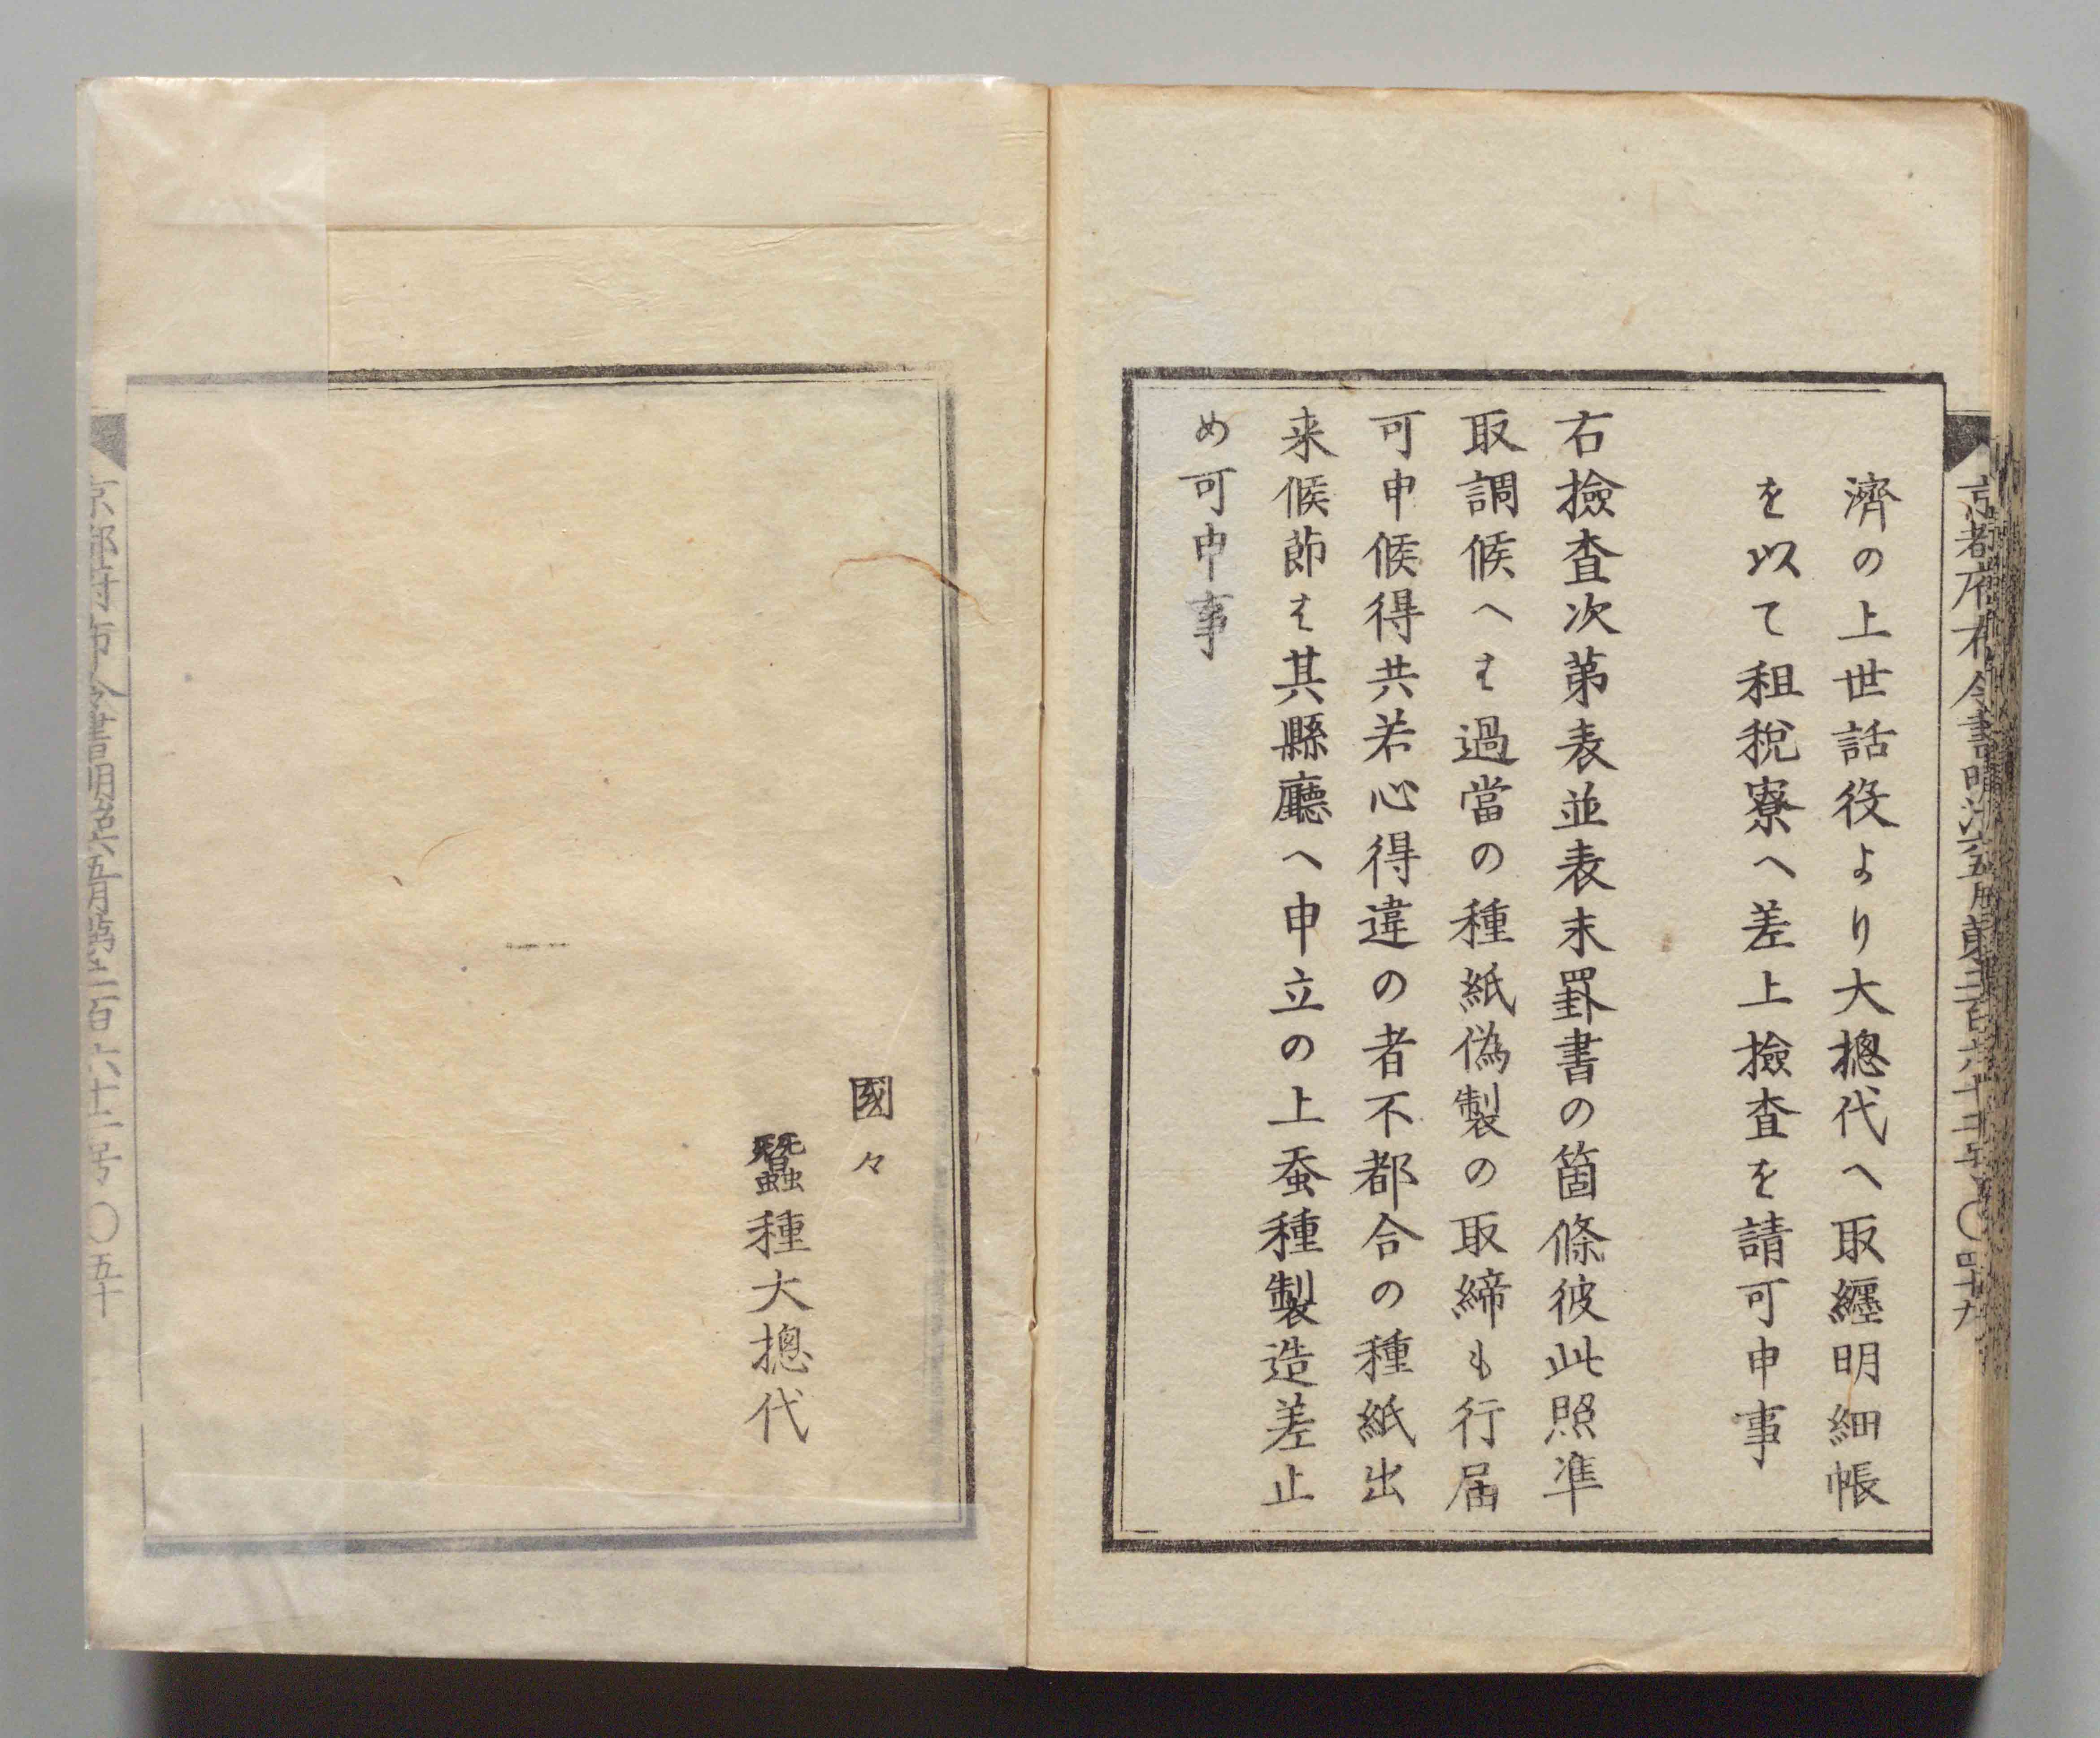 濟の上世話役より大摠代へ取纒明細帳
を以て租税寮へ差上撿査を請可申事
右撿査次第表並表末罫書の箇條彼此照準
取調候へは過當の種紙偽製の取締も行届
可申候得共若心得違の者不都合の種紙出
来候節は其縣廳へ申立の上蚕種製造差止
め可申事
國々
蠶種大摠代
京都府布令書明治六五月第二百六十二号〇五十